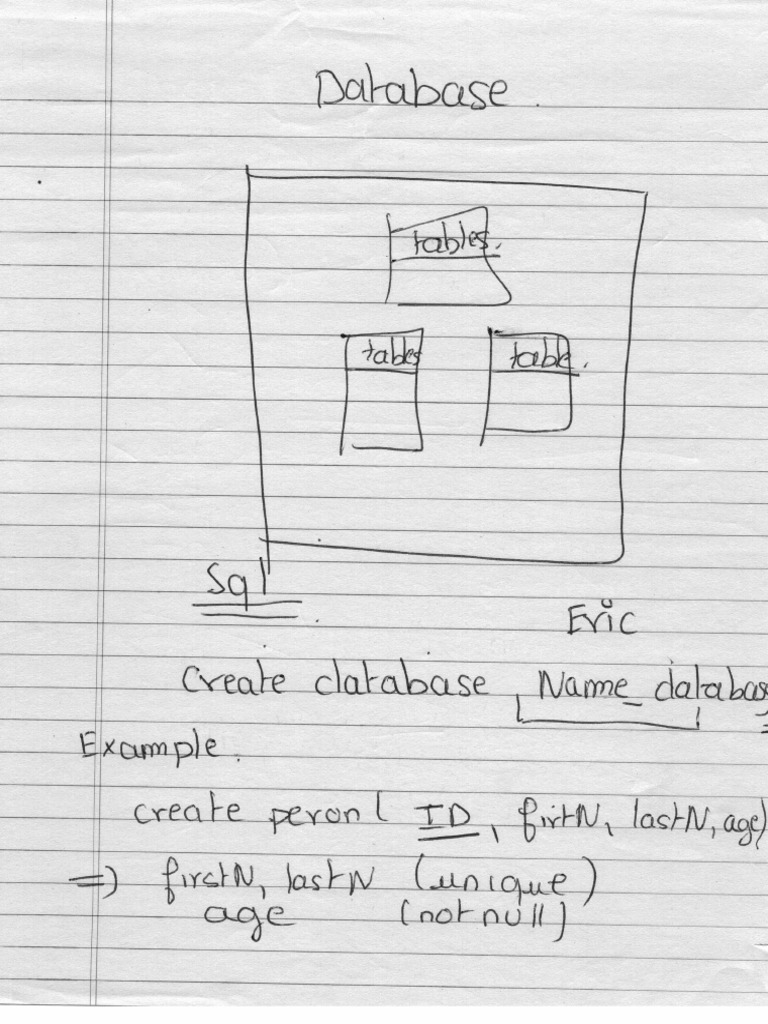 Database.
tables.
tables table.
Sql
Eric
Create database Name_database
Example.
create peron( ID, firtN, lastN, age)
=> firstN, lastN (unique)
age (not null)